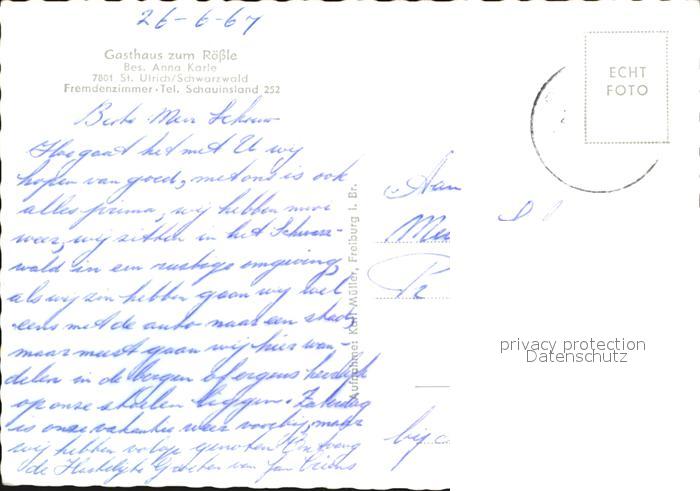 26-6-67
Gasthaus zum Rößle
Bes. Anna Karle
7801 St. Ulrich/Schwarzwald
Fremdenzimmer · Tel. Schauinsland 252
Beste Mevr
Hoe gaat het met U wij
hopen van goed, met ons is ook
alles prima, wij hebben mooi
weer, wij zitten in het Schwarz-
wald in een rustige omgeving
als wij zin hebben gaan wij wel
eens met de auto naar een stad,
maar meest gaan wij hier wan-
delen in de bergen of ergens heerlijk
op onze stoelen liggen. Zaterdag
is onze vakantie weer voorbij, maar
wij hebben volop genoten Ontvang
de Hartelijke Groeten van Jan
Aufnahme: Karl Müller, Freiburg i. Br.
ECHT
FOTO
Aan
Mev
bij
privacy protection
Datenschutz